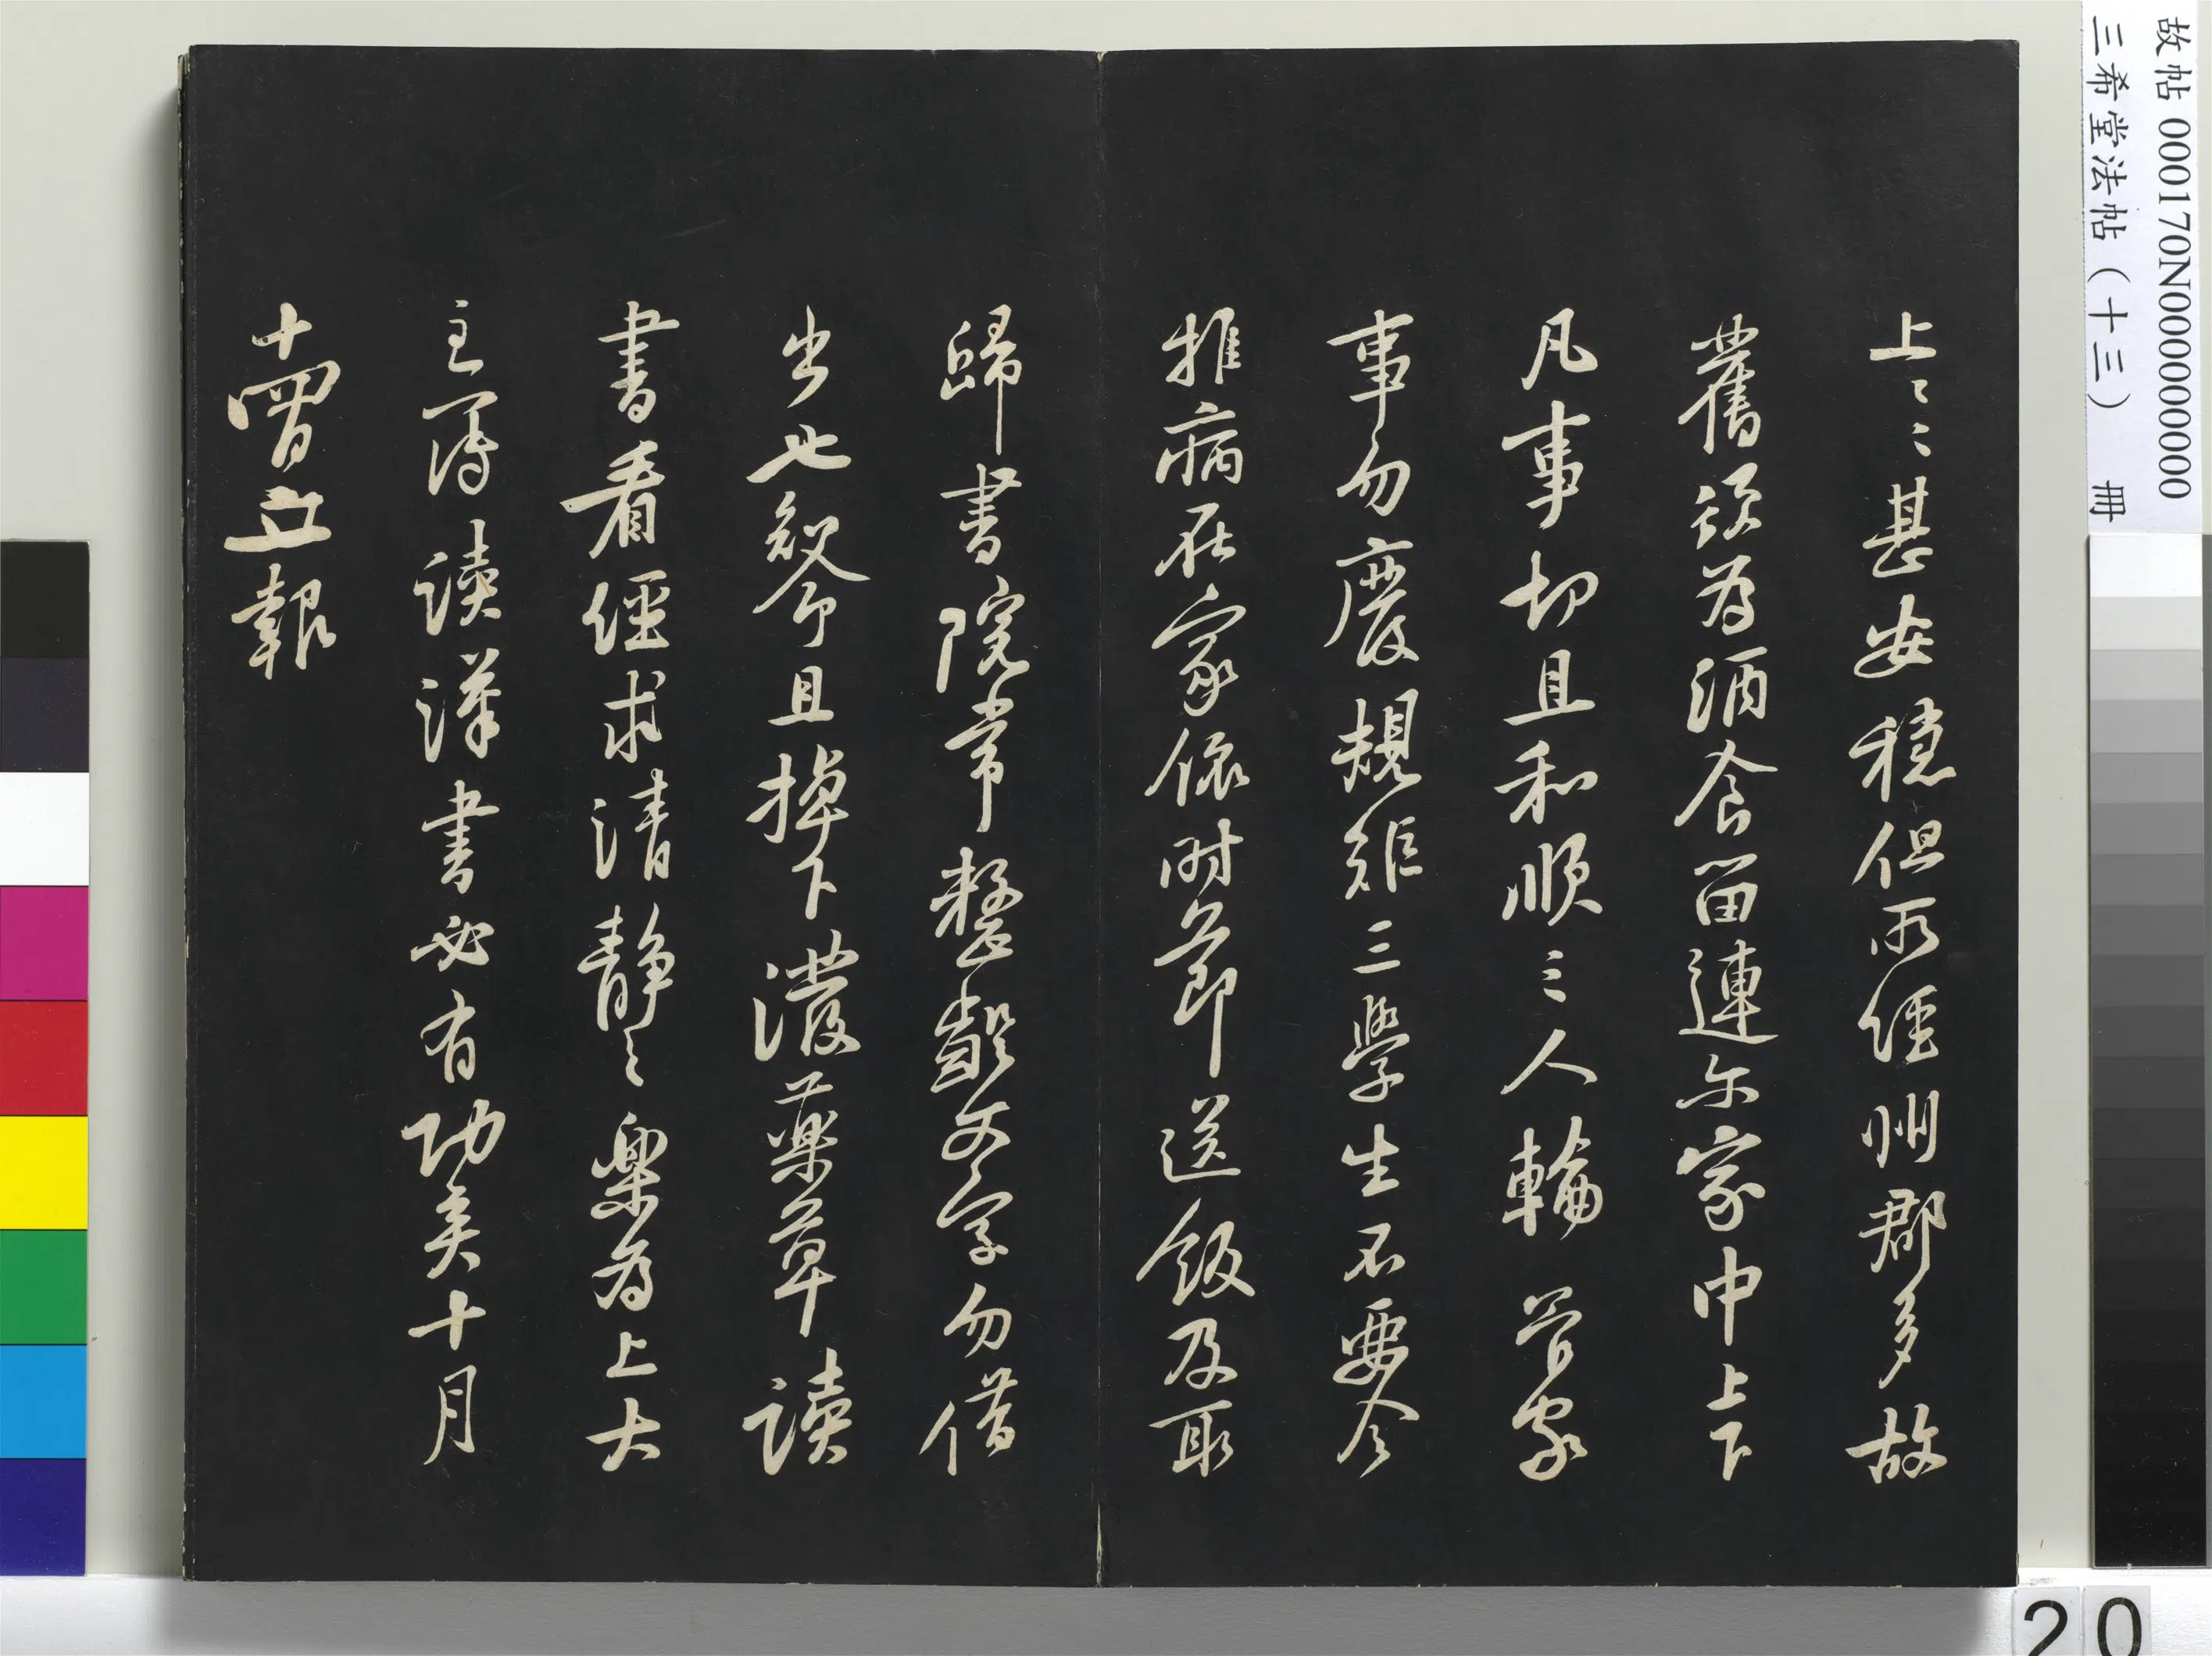 上〻〻甚安穩但所經州郡多故
舊須為酒食留連尔家中上下
凡事切且和順三人輪管家
事勿廢規矩三學生不要令
推病在家依時節送飯及取
歸書院常整齪文字勿借
出也知命且掉下潑藥草讀
書看經求清靜之樂為上大
主簿讀漢書必有功矣十月
十四日報
故帖 000170N000000000
三希堂法帖(十三) 冊
20